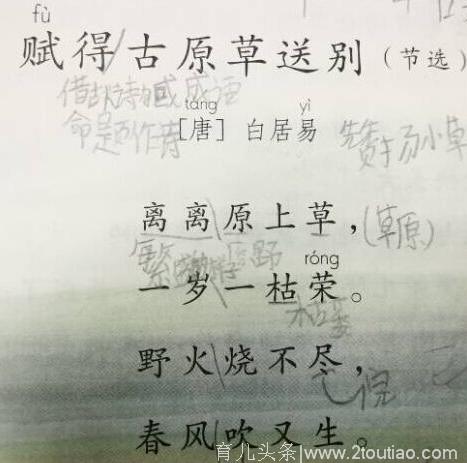 fù
赋得古原草送别（节选）
借古诗或成语
命题作 赞扬小草
táng yì
[唐] 白居易
离离原上草， （草原）
繁 原野
róng
一岁一枯荣。
枯萎
野火烧不尽，
完
春风吹又生。
育儿头条@www.2toutiao.com